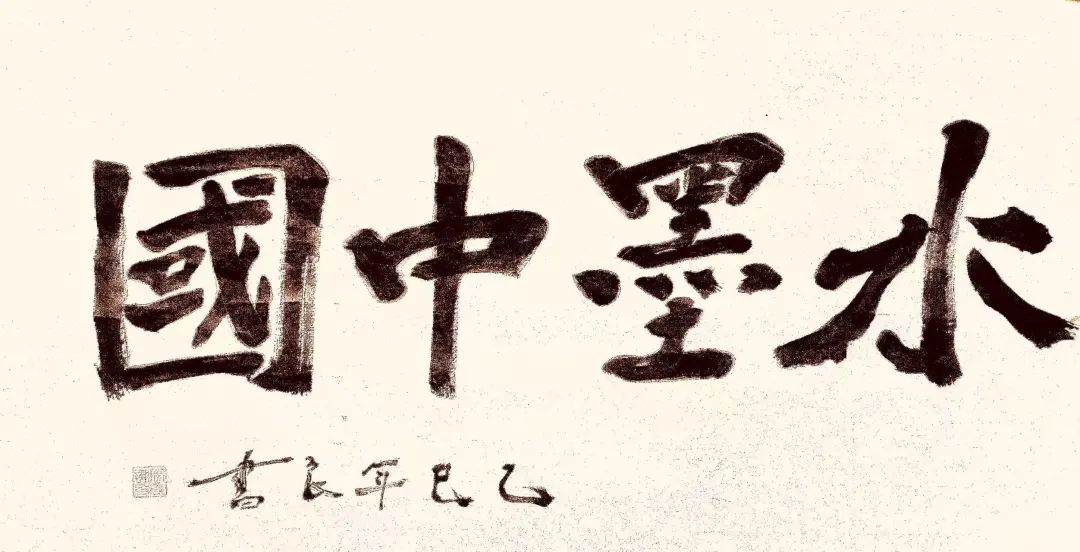 水墨中國
乙巳年良書